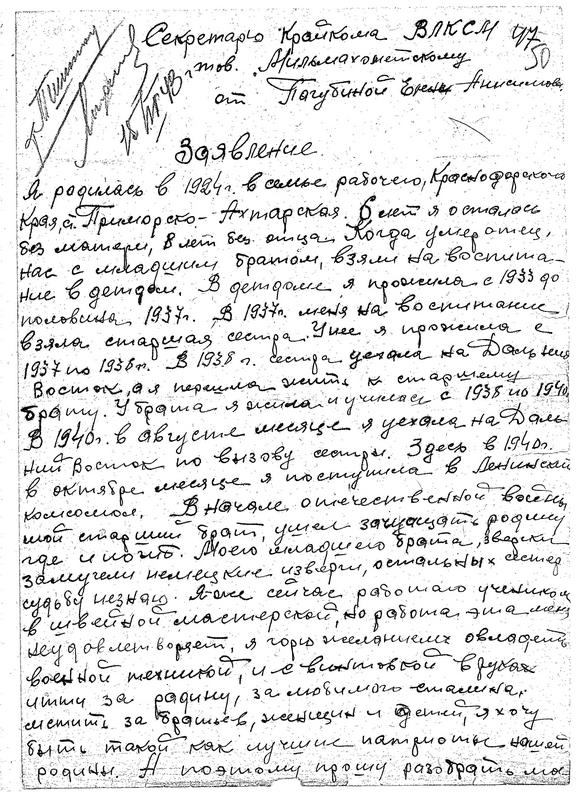 Секретарю Крайкома ВЛКСМ 47
50
тов. Мильмахометскому
от Пагубиной Анисимовн
15
Заявление.
Я родилась в 1924 г. в семье рабочего, Краснодарского
края, ст. Приморско-Ахтарская. 6 лет я осталась
без матери, 8 лет без отца. Когда умер отец,
нас с младшим братом, взяли на воспита-
ние в детдом. В детдоме я прожила с 1933 до
половина 1937 г. В 1937 г. меня на воспитание
взяла старшая сестра. У нее я прожила с
1937 по 1938 г. В 1938 г. сестра уехала на Дальний
Восток, а я перешла жить к старшему
брату. У брата я жила и училась с 1938 по 1940
В 1940 г. в августе месяце я уехала на Даль
ний Восток по вызову сестры. Здесь в 1940 г.
в октябре месяце я поступила в Ленинский
комсомол. В начале отечественной войны
мой старший брат, ушел защищать родину
где и погиб. Моего младшего брата, зверски
замучели немецкие изверги, остальных сестер
судьбу незнаю. Я же сейчас работаю учеником
в швейной мастерской, но работа эта меня
неудовлетворяет, я горю желанием овладеть
военной техникой, и с винтовкой в руках
итти за родину, за любимого сталина,
мстить за братьев, женщин и детей, я хочу
быть такой как лучшие патриоты нашей
родины. А поэтому прошу разобрать мо